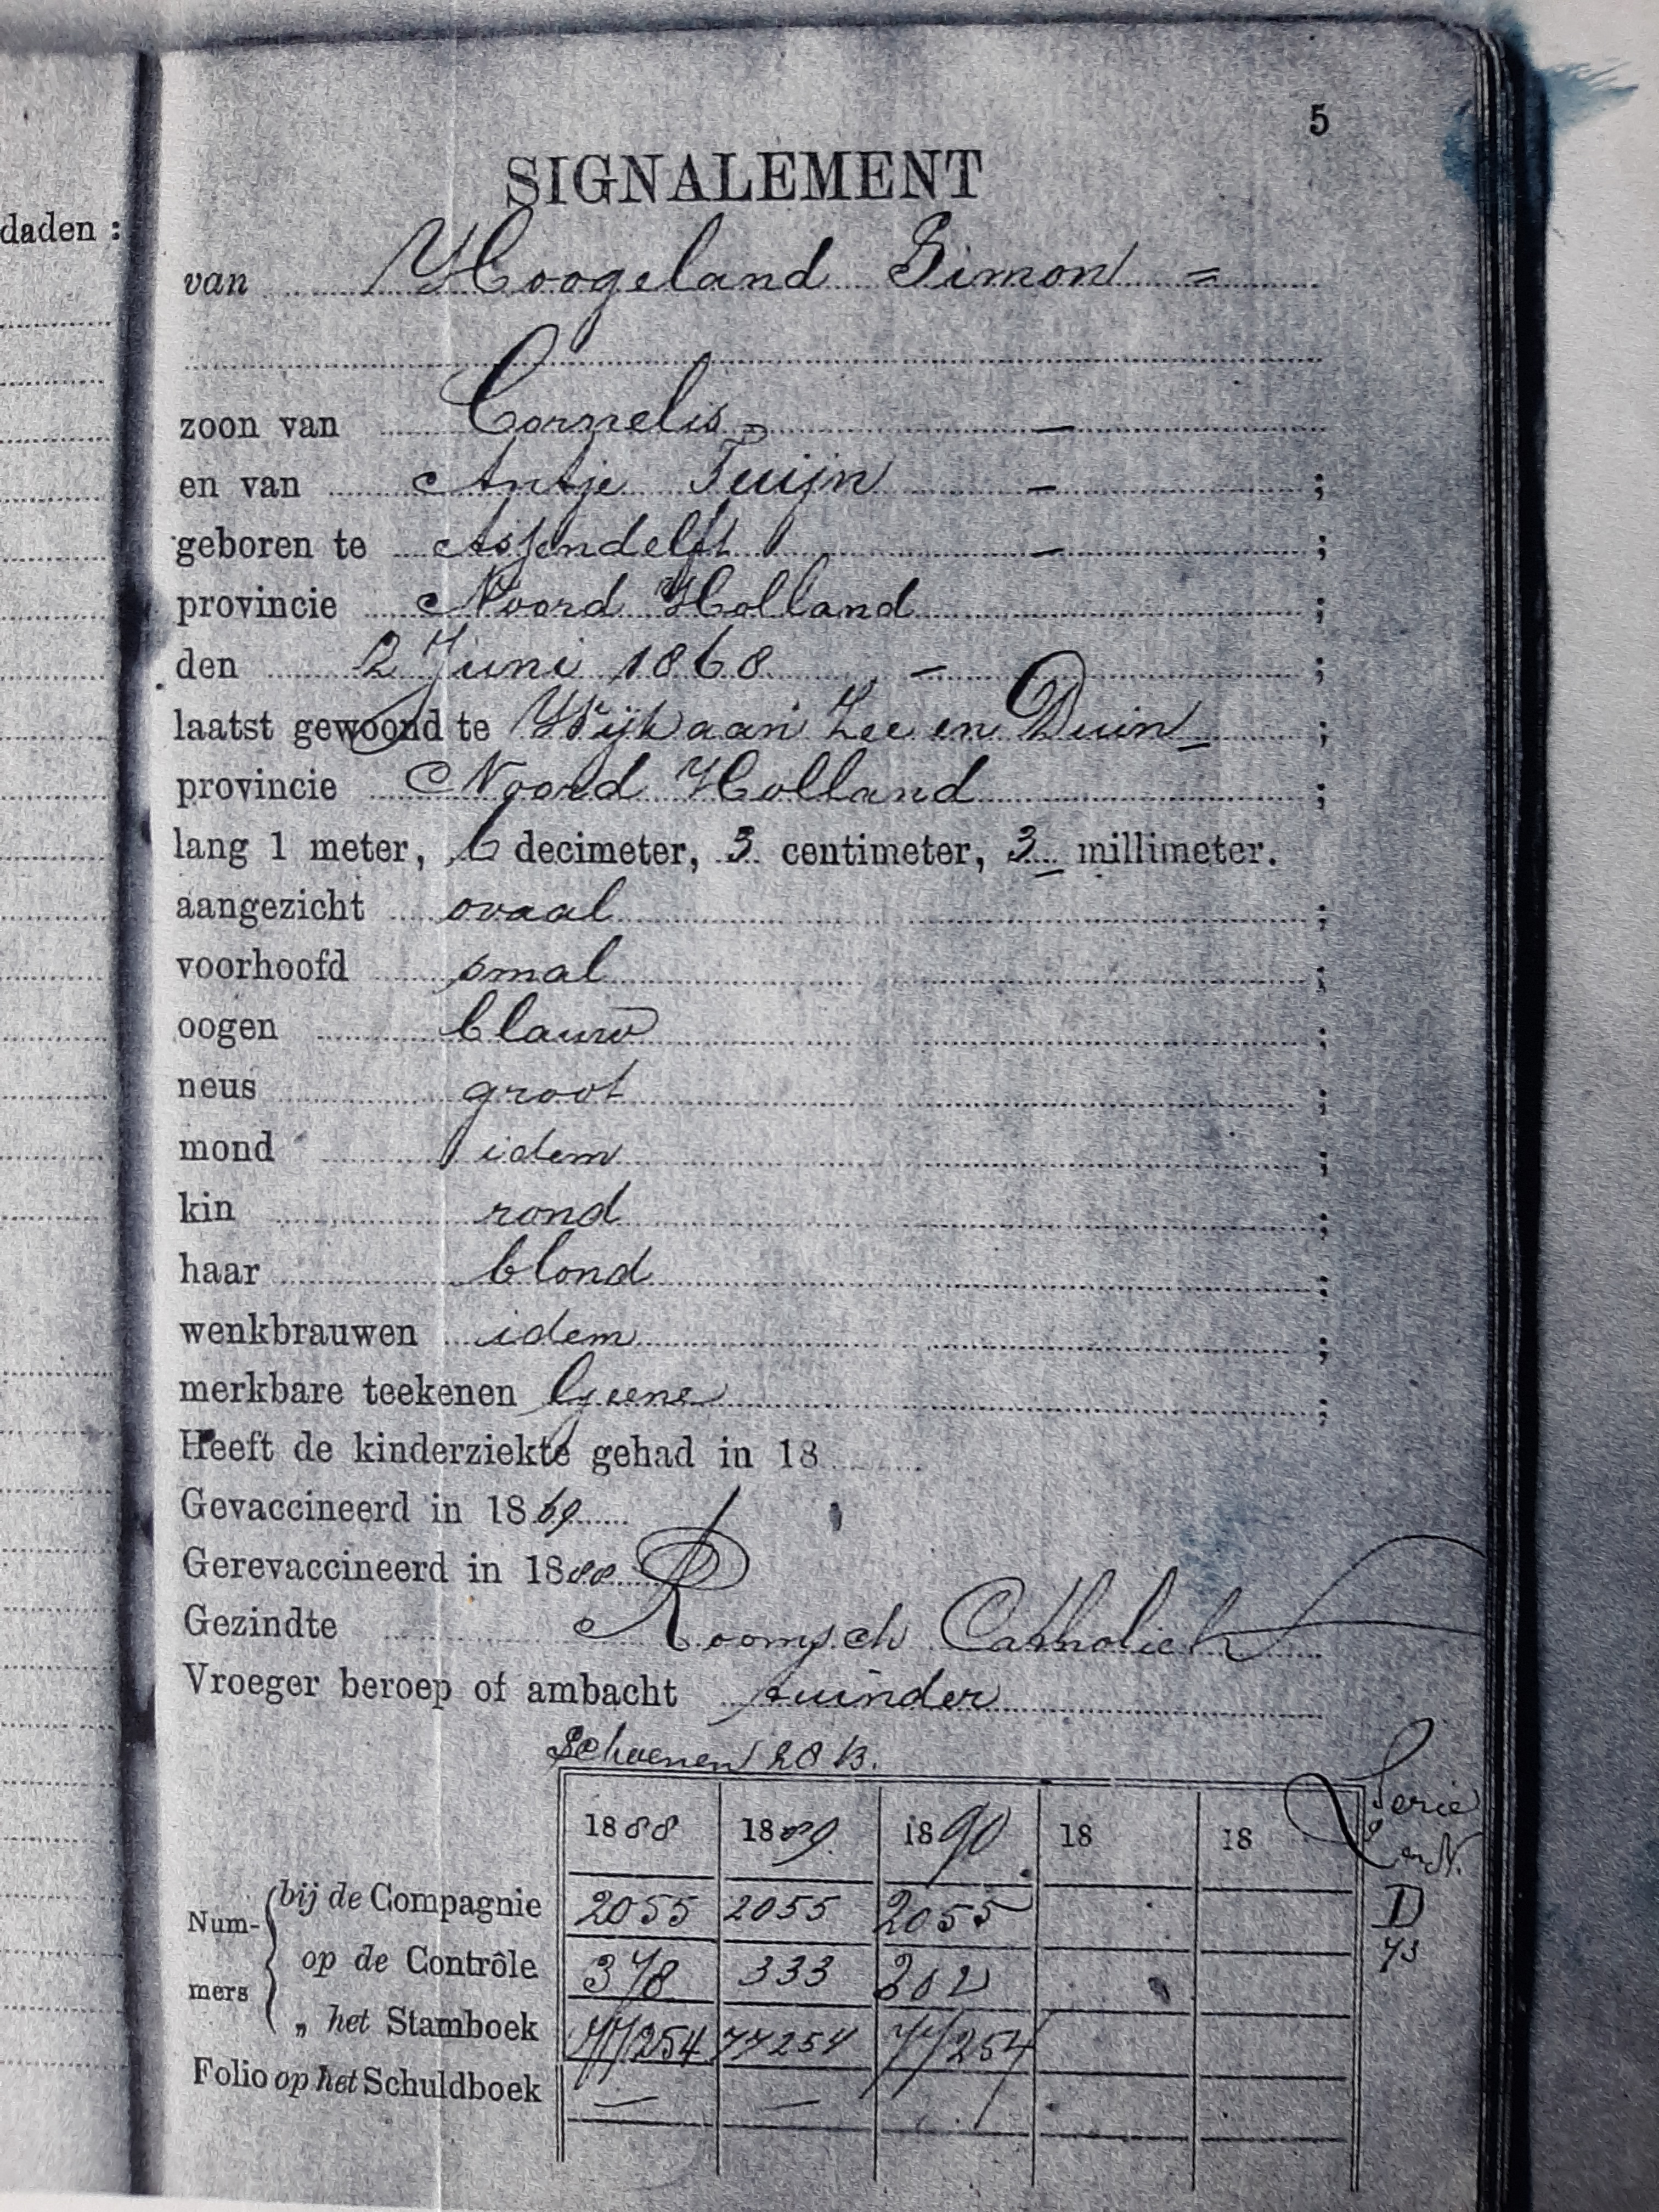 5
SIGNALEMENT
daden :
van Hoogeland Simon =
zoon van Cornelis = —
en van Antje Tuijn — ;
geboren te Assendelft — ;
provincie Noord Holland ;
den 2 Juni 1868 — ;
laatst gewoond te Wijk aan Zee en Duin ;
provincie Noord Holland ;
lang 1 meter, 6 decimeter, 3 centimeter, 3 millimeter.
aangezicht ovaal ;
voorhoofd smal ;
oogen blauw ;
neus groot ;
mond idem ;
kin rond ;
haar blond ;
wenkbrauwen idem ;
merkbare teekenen Geene ;
Heeft de kinderziekte gehad in 18
Gevaccineerd in 1869
Gerevaccineerd in 1888
Gezindte Roomsch Catholiek
Vroeger beroep of ambacht tuinder
Schoenen 28 B.
Serie
1888 1889. 1890 18 18
Num- bij de Compagnie 2055 2055 2055 D
mers op de Contrôle 378 333 202
„ het Stamboek 77254 77254 77254
Folio op het Schuldboek — —